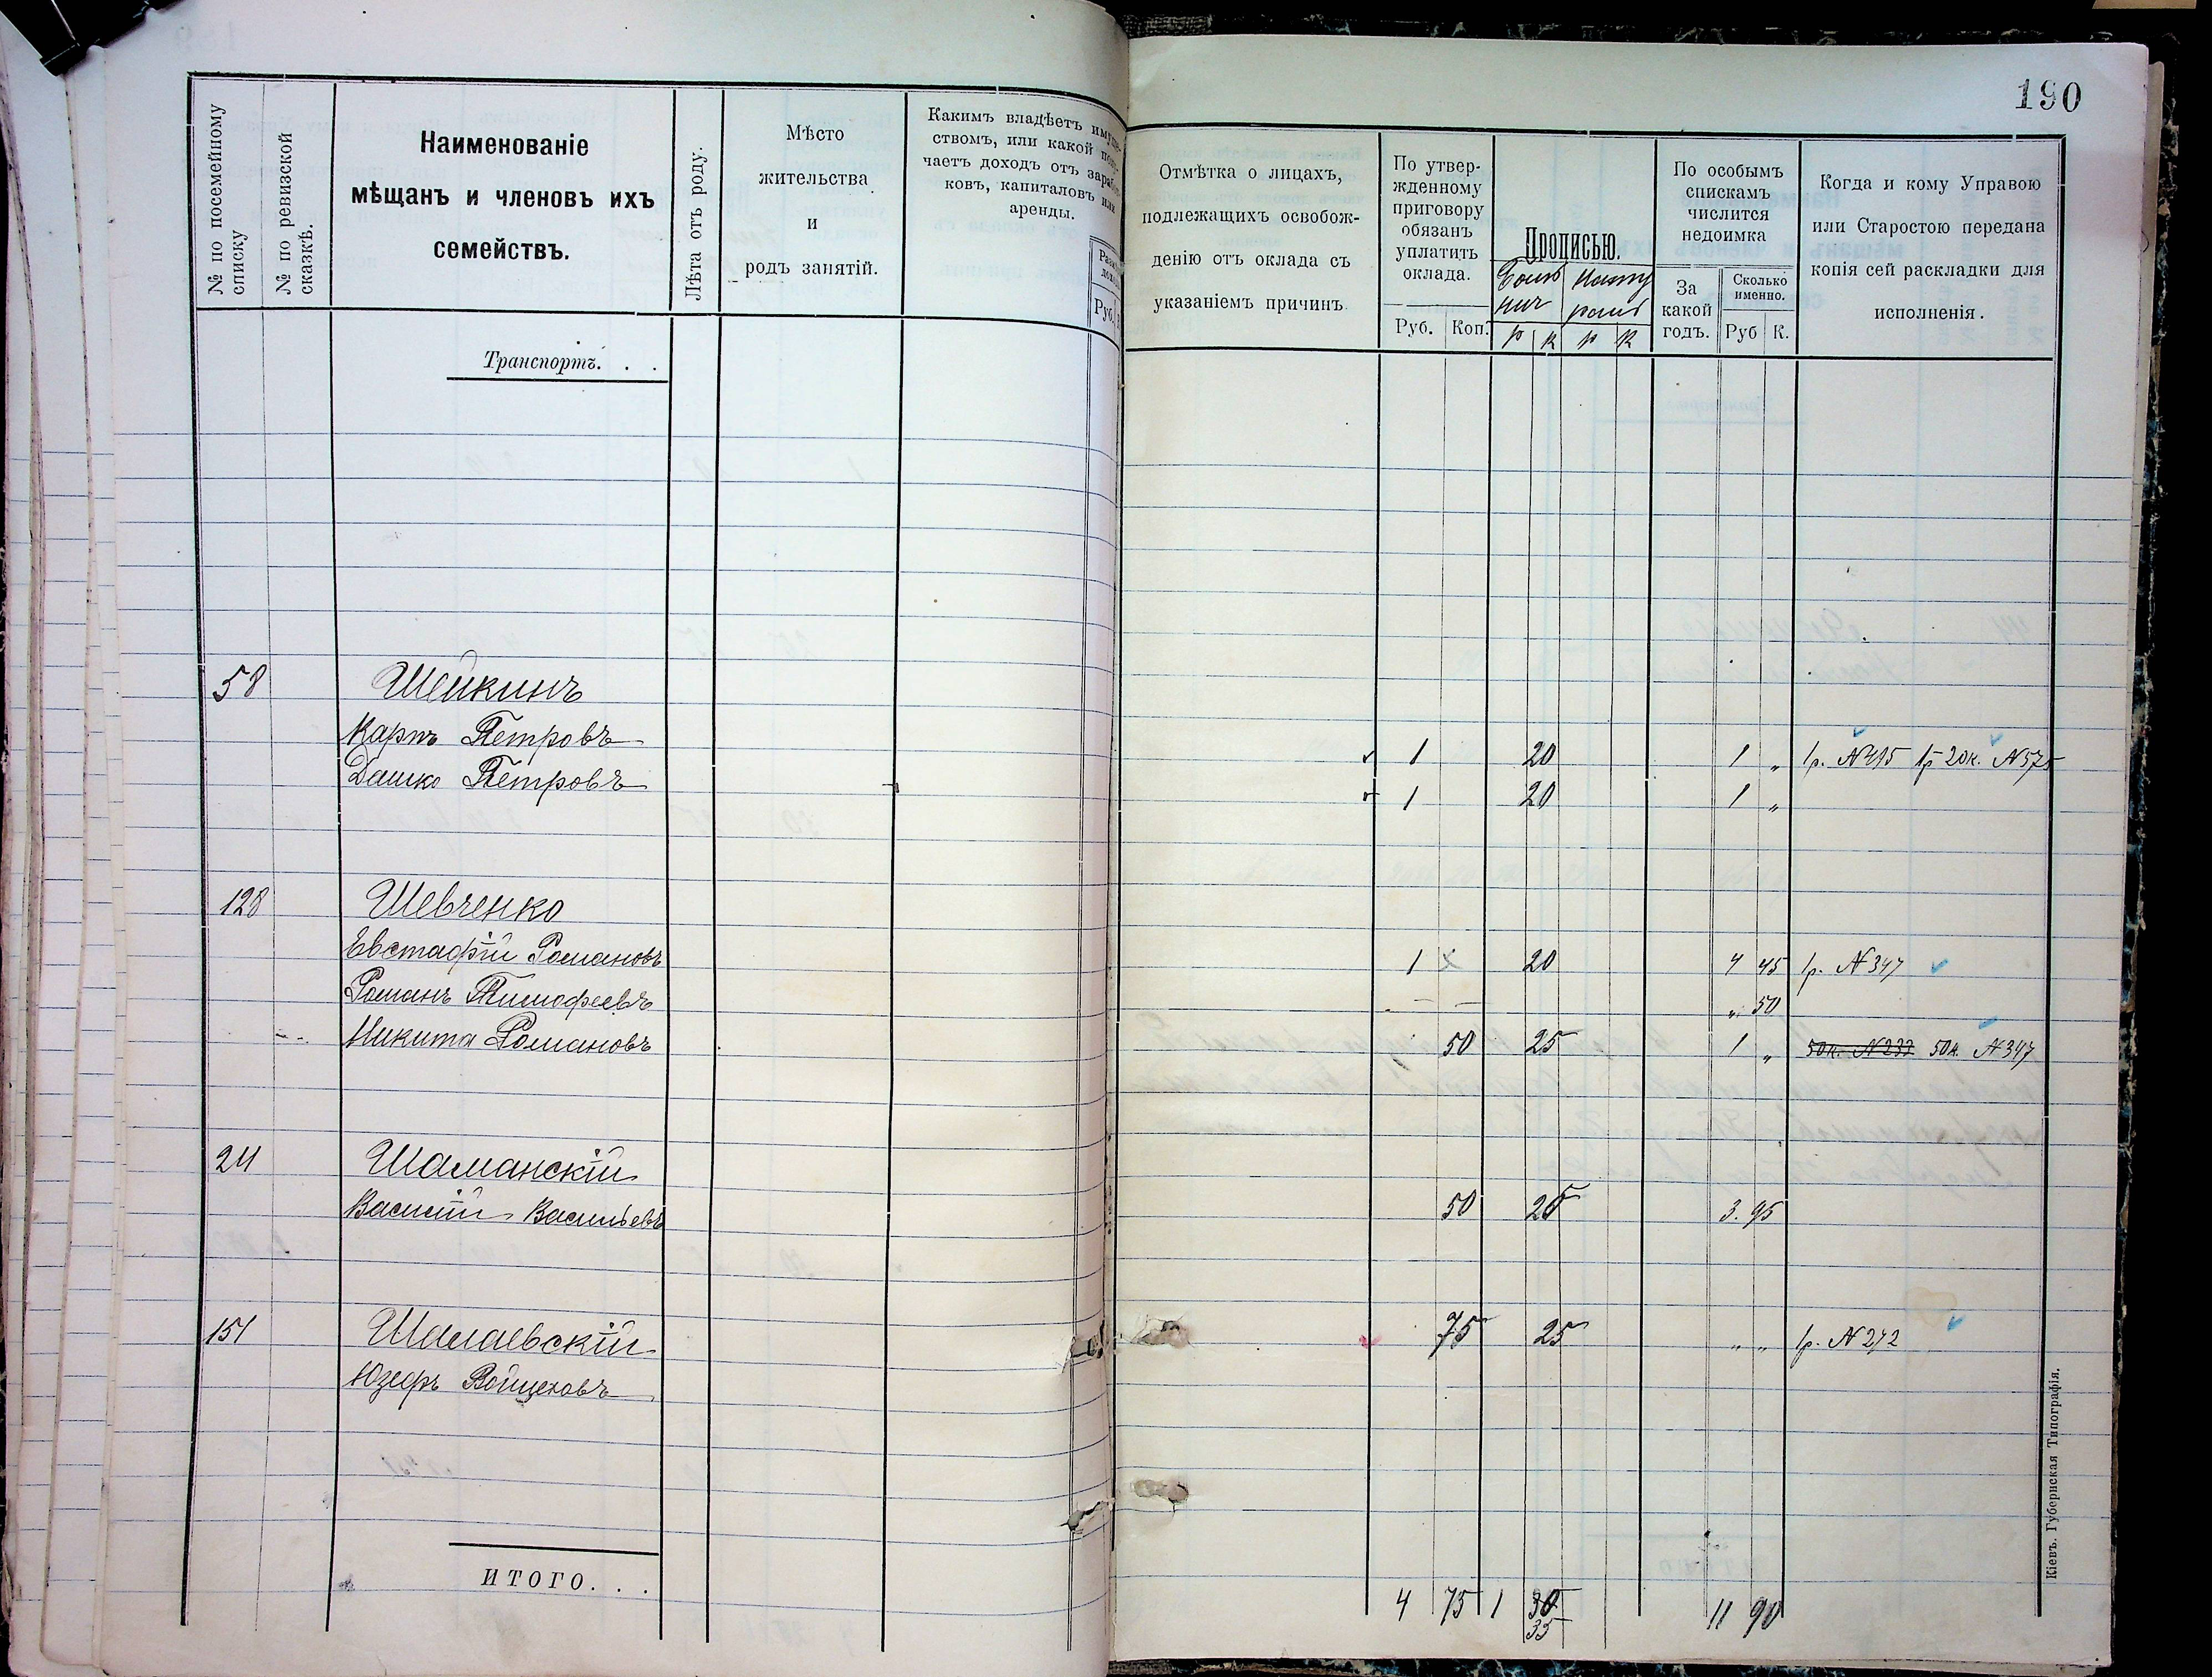 190
№ по посемейному списку
№ по ревизской сказкѣ.
Наименованіе
мѣщанъ и членовъ ихъ
семействъ.
Лѣта отъ роду.
Мѣсто
жительства
и
родъ занятій.
Какимъ владѣетъ имуще-
ствомъ, или какой полу-
чаетъ доходъ отъ заработ-
ковъ, капиталовъ или
аренды.
Руб.
Отмѣтка о лицахъ,
подлежащихъ освобож-
денію отъ оклада съ
указаніемъ причинъ.
По утвер-
жденному
приговору
обязанъ
уплатить
оклада.
Руб. Коп.
Прописью.
р к р к
По особымъ
спискамъ
числится
недоимка
За
какой
годъ.
Сколько
именно.
Руб К.
Когда и кому Управою
или Старостою передана
копія сей раскладки для
исполненія.
Транспортъ. . .
58 Шейкинъ
Карпъ Петровъ 1 20 1 „ 1р. №495 1р 20к. №575
Дашко Петровъ 1 20 1 „
128 Шевченко
Евстафій Романовъ 1 х 20 4 45 1р. №347
Романъ Тимофеевъ — — „ 50
Никита Романовъ 50 25 1 „ 50к. №233 50к. №347
211 Шаманскій
Василій Васильевъ 50 25 3. 95
151 Шалаевскій 75 25 „ „ 1р. №272
Юзефъ Войцеховъ
ИТОГО. . . 4 75 1 30 11 90
35
Кіевъ. Губернская Типографія.